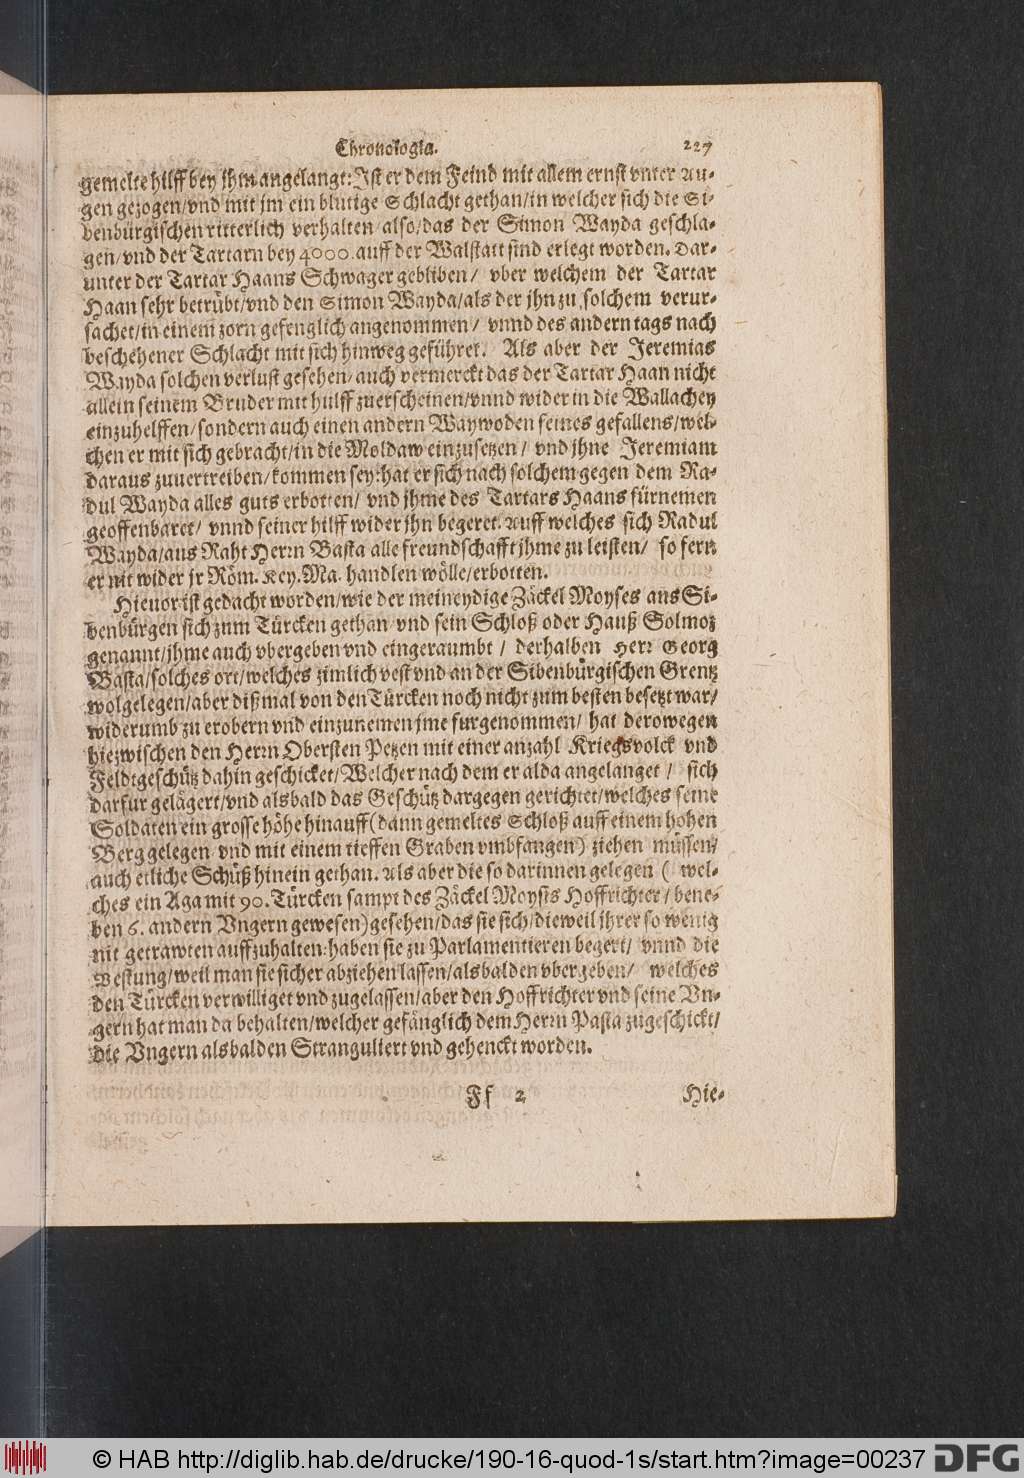 Chronologia. 227
gemelte hilff bey jhm angelangt: Ist er dem Feind mit allem ernst vnter Au-
gen gezogen/vnd mit jm ein blutige Schlacht gethan/in welcher sich die Si-
benbürgischen ritterlich verhalten/also/das der Simon Wayda geschla-
gen/vnd der Tartarn bey 4000. auff der Walstatt sind erlegt worden. Dar-
unter der Tartar Haans Schwager gebliben/ vber welchem der Tartar
Haan sehr betrübt/vnd den Simon Wayda/als der jhn zu solchem verur-
sachet/in einem zorn gefenglich angenommen/ vnnd des andern tags nach
beschehener Schlacht mit sich hinweg geführet. Als aber der Jeremias
Wayda solchen verlust gesehen/auch vermerckt das der Tartar Haan nicht
allein seinem Bruder mit hülff zuerscheinen/vnnd wider in die Wallachey
einzuhelffen/sondern auch einen andern Waywoden seines gefallens/wel-
chen er mit sich gebracht/in die Moldaw einzusetzen/ vnd jhne Jeremiam
daraus zuuertreiben/kommen sey: hat er sich nach solchem gegen dem Ra-
dul Wayda alles guts erbotten/ vnd jhme des Tartars Haans fürnemen
geoffenbaret/ vnnd seiner hilff wider jhn begeret. Auff welches sich Radul
Wayda/aus Raht Herrn Basta alle freundschafft jhme zu leisten/ so fern
er nit wider jr Röm. Key. Ma. handlen wölle/erbotten.
Hieuor ist gedacht worden/wie der meineydige Zäckel Moyses aus Si-
benbürgen sich zum Türcken gethan/vnd sein Schloß oder Hauß Solmoz
genannt/jhme auch vbergeben vnd eingeraumbt/ derhalben Herr Georg
Basta/solches ort/welches zimlich vest vnd an der Sibenbürgischen Grentz
wolgelegen/aber dißmal von den Türcken noch nicht zum besten besetzt war/
widerumb zu erobern vnd einzunemen jme furgenommen/ hat derowegen
hiezwischen den Herrn Obersten Petzen mit einer anzahl Kriegsvolck vnd
Feldtgeschütz dahin geschicket/Welcher nach dem er alda angelanget/ sich
darfur gelägert/vnd alsbald das Geschütz dargegen gerichtet/welches seine
Soldaten ein grosse höhe hinauff (dann gemeltes Schloß auff einem hohen
Berg gelegen/vnd mit einem tieffen Graben vmbfangen) ziehen müssen/
auch etliche Schüß hinein gethan. Als aber die so darinnen gelegen ( wel-
ches ein Aga mit 90. Türcken sampt des Zäckel Moysis Hoffrichter/bene-
ben 6. andern Vngern gewesen) gesehen/das sie sich/dieweil jhrer so wenig
nit getrawten auffzuhalten: haben sie zu Parlamentieren begert/ vnnd die
Vestung/weil man sie sicher abziehen lassen/alsbalden vbergeben/ welches
den Türcken verwilliget vnd zugelassen/aber den Hoffrichter vnd seine Vn-
gern hat man da behalten/welcher gefänglich dem Herrn Pasta zugeschickt/
die Vngern alsbalden Stranguliert vnd gehenckt worden.
Ff 2 Hie-
© HAB http://diglib.hab.de/drucke/190-16-quod-1s/start.htm?image=00237 DFG